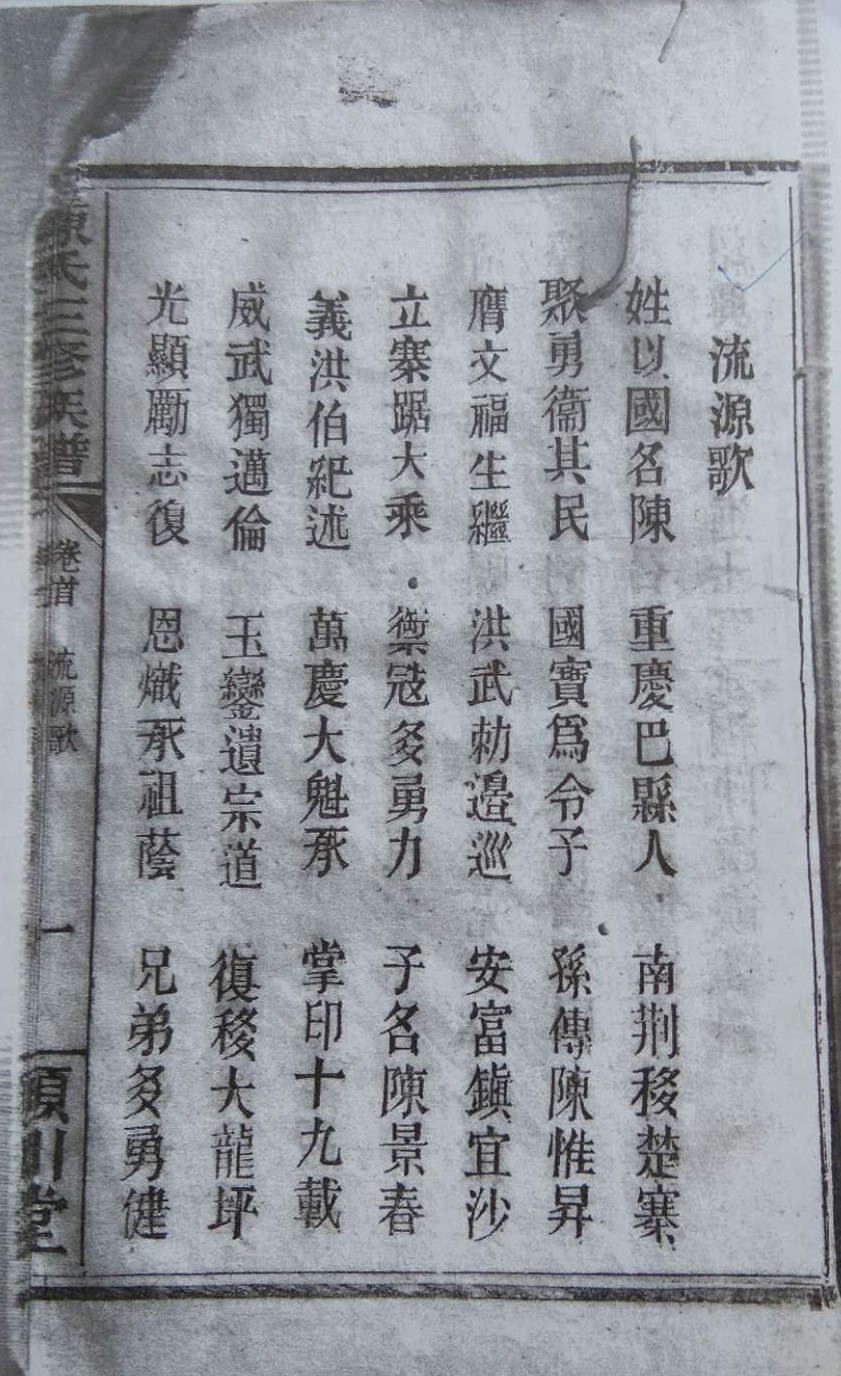 流源歌
姓以國名陳 重慶巴縣人 南荆移楚寨
聚勇衞其民 國寶爲令子 孫傳陳惟昇
膺文福生繼 洪武勅邊巡 安富鎭宜沙
立寨踞大乘 禦冦多勇力 子名陳景春
義洪伯紀述 萬慶大魁承 掌印十九載
威武獨邁倫 玉鑾遺宗道 復移大龍坪
光顯勵志復 恩熾承祖蔭 兄弟多勇健
陳氏三修族譜 卷首 流源歌 一 潁川堂